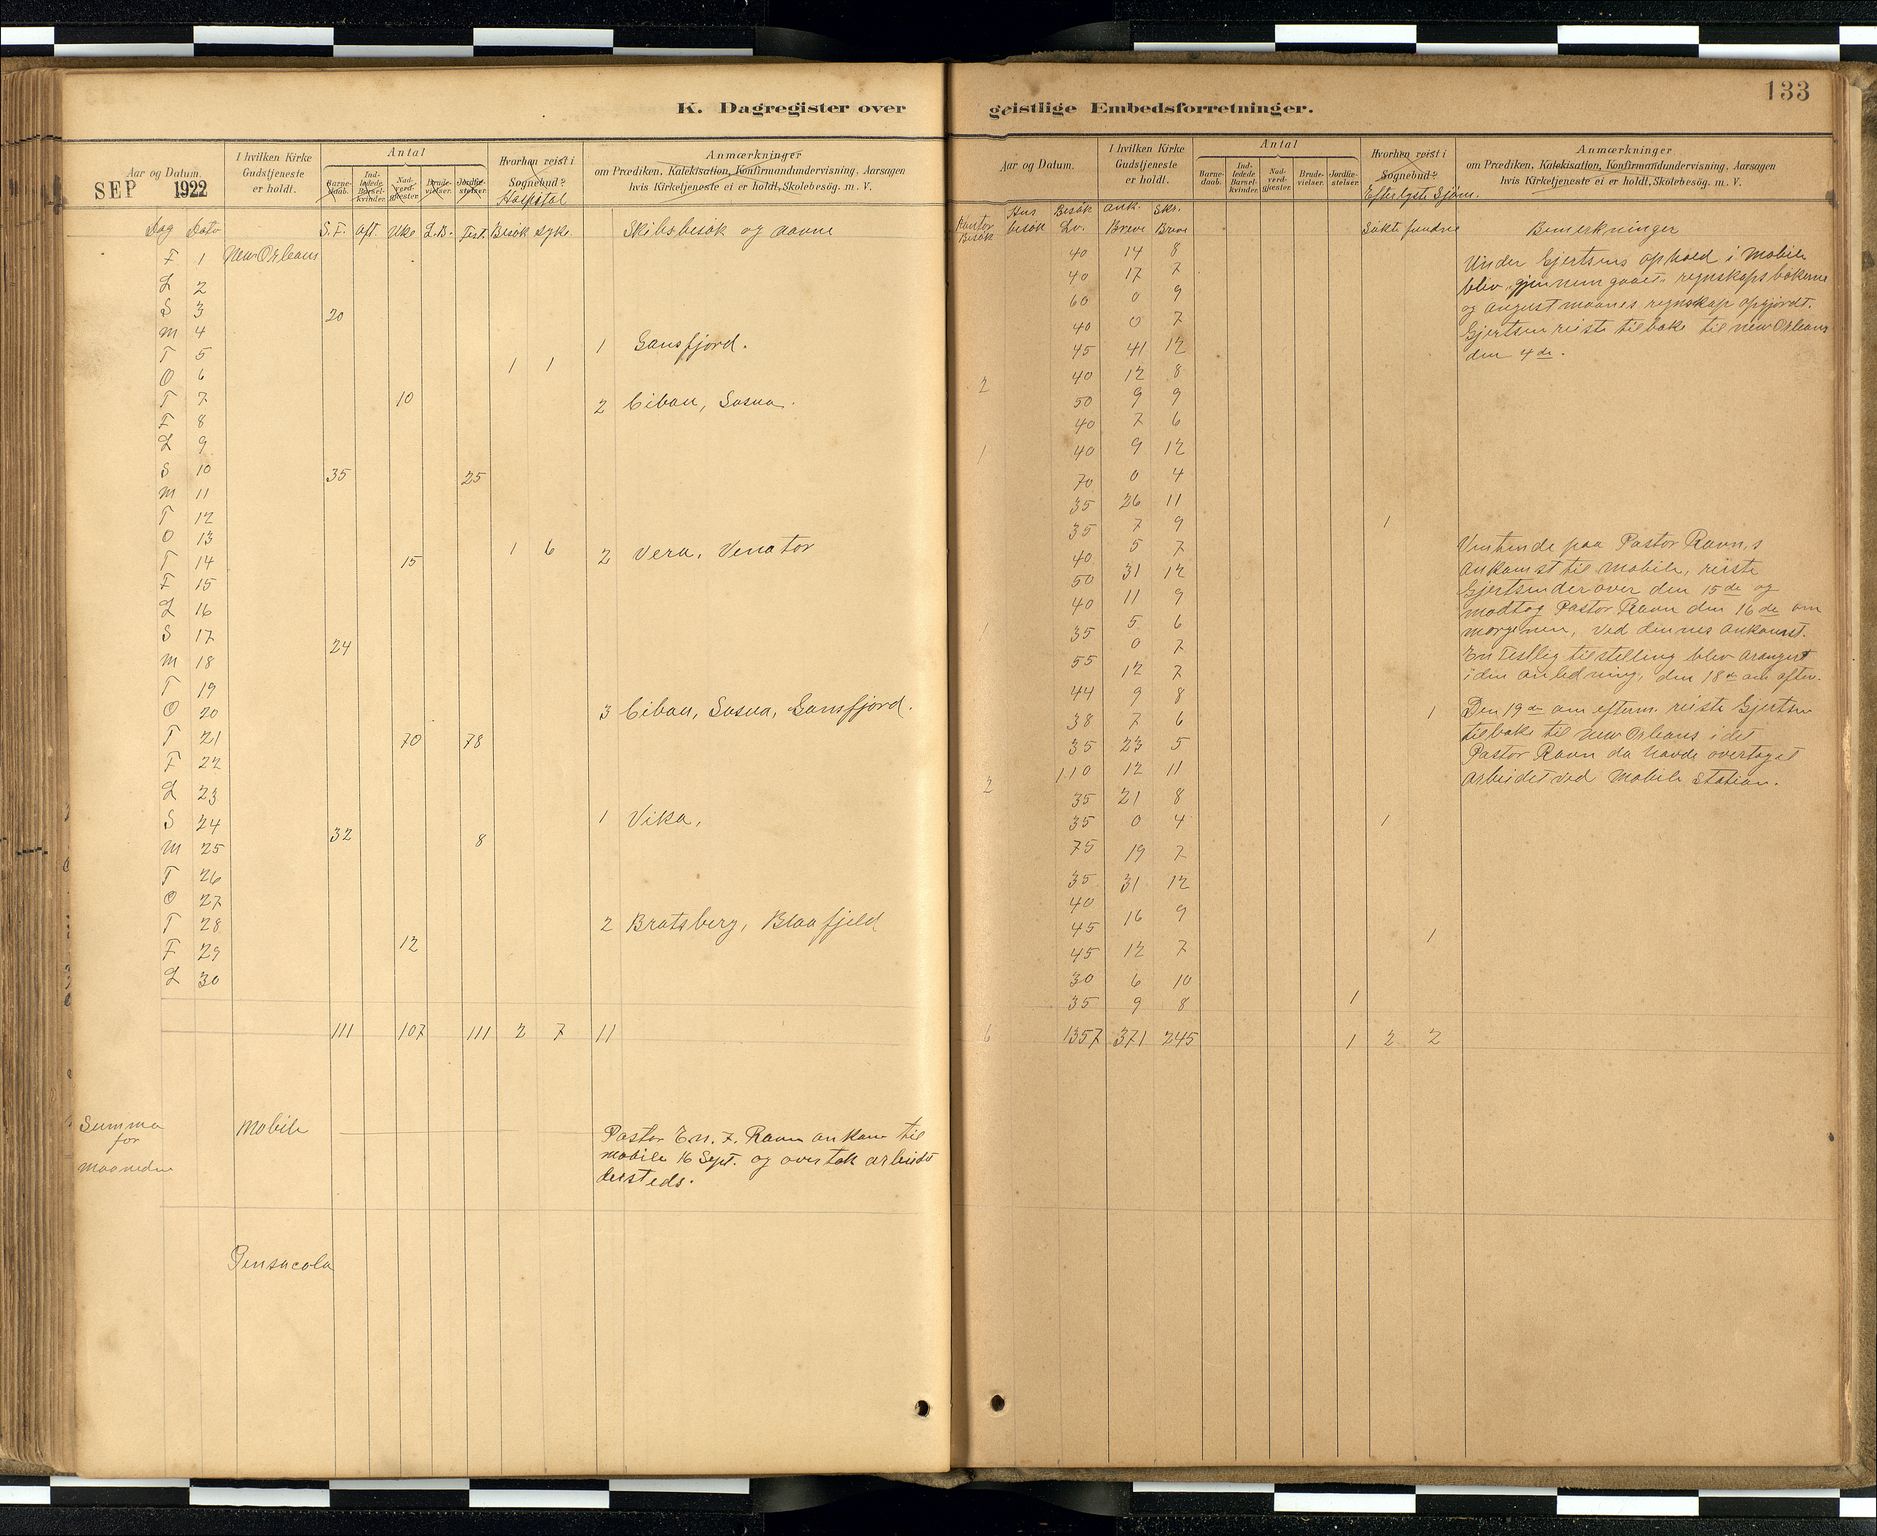 K. Dagregister over
Aar og Datum.
SEP 1922
I hvilken Kirke
Gudstjeneste
er holdt.
Antal
Barne-
daab.
Ind-
ledede
Barsel-
kvinder.
Nad-
verd-
gjester.
Brude-
vielser.
Jordfæ-
stelser.
Hvorhen reist i
Sognebud?
Hospital
Anmærkninger
om Prædiken, Katekisation, Konfirmandundervisning, Aarsagen
hvis Kirketjeneste ei er holdt, Skolebesög. m. V.
Dag Dato S.F. Aft. Uke L.B. Fest. Besök syke Skibsbesök og navne
F 1 New Orleans
L 2
S 3 20
M 4 1 Gansfjord.
T 5 1 1
O 6
T 7 10 2 Cibau, Sosua.
F 8
L 9
S 10 35 25
M 11
T 12
O 13 1 6
T 14 15 2 Vera, Venator
F 15
L 16
S 17 24
M 18
T 19
O 20 3 Cibau, Sosua, Gansfjord.
T 21 70 78
F 22
L 23
S 24 32 8 1 Vika,
M 25
T 26
O 27
T 28 12 2 Bratsberg, Blaafjeld
F 29
L 30
111 107 111 2 7 11
Summa
for
maaneden
Mobile
Pastor En. F. Ravn ankom til
Mobile 16 Sept. og overtok arbeidet
dersteds.
Pensacola
133
geistlige Embedsforretninger.
Aar og Datum.
I hvilken Kirke
Gudstjeneste
er holdt.
Antal
Barne-
daab.
Ind-
ledede
Barsel-
kvinder.
Nad-
verd-
gjester.
Brude-
vielser.
Jordfæ-
stelser.
Hvorhen reist i
Sognebud?
Efterlyste Sjöm.
Anmærkninger
om Prædiken, Katekisation, Konfirmandundervisning, Aarsagen
hvis Kirketjeneste ei er holdt, Skolebesög. m. V.
Kontor
Besök
Hus
besök
Besök
Lv.
Ank.
Breve
Skr.
Breve
Sökte fundne Bemerkninger
40 14 8
40 17 7
60 0 9
40 0 7
45 41 12
2 40 12 8
50 9 9
40 7 6
1 40 9 12
70 0 4
35 26 11
35 7 9 1
40 5 7
50 31 12
40 11 9
1 35 5 6
55 0 7
44 12 7
38 9 8 1
35 7 6
110 23 5
2 35 12 11
35 21 8
75 0 4 1
35 19 7
40 31 12
45 16 9
45 12 7 1
30 6 10
35 9 8 1
6 1357 371 245 1 2 2
Under Gjertsens ophold i Mobile
blev gjennemgaaet regnskapsbökerne
og August maanes regnskap opgjordt.
Gjertsen reiste tilbake til New Orleans
den 4de.
Ventende paa Pastor Ravn,s
ankomst til Mobile, reiste
Gjertsen derover den 15de og
modtog Pastor Ravn den 16de om
morgenen, ved dennes ankomst.
En Festlig tilstelling blev arangert
i den anledning, den 18de om aften.
Den 19de om efterm. reiste Gjertsen
tilbake til New Orleans i det
Pastor Ravn da havde overtaget
arbeidet ved Mobile station.